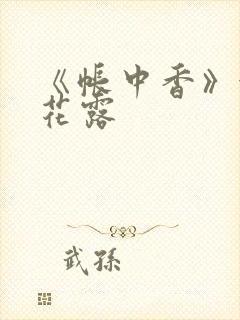 《帐中香》
花露
武孙